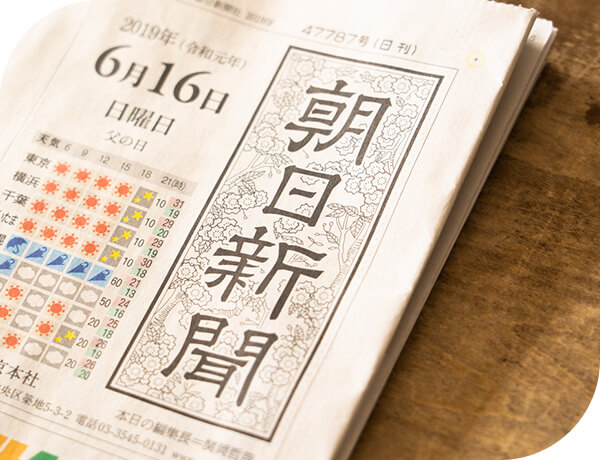 47787号(日刊)
2019年(令和元年)
6月16日
日曜日
父の日
朝日新聞
天気 6 9 12 15 18 21(時)
東京 10 31
19
横浜 10 29
19
千葉 10 26
19
たま 10 30
18
60 21
13
50 24
16
20 25
18
20 26
20
20 26
20
京本社
央区築地5-3-2 電話03-3545-0131
本日の編集長=